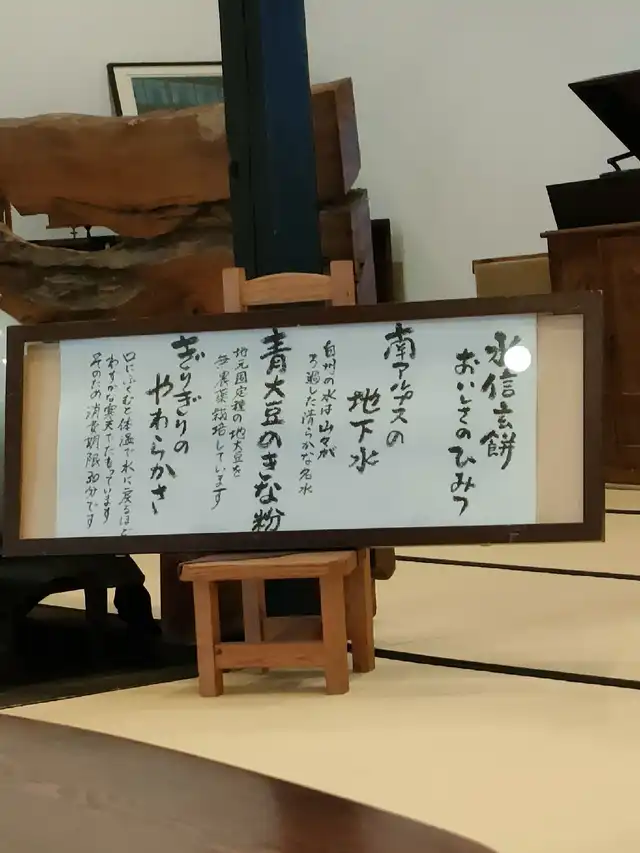 水信玄餅
おいしさのひみつ
南アルプスの
地下水
白州の水は山々が
ろ過した清らかな名水
青大豆のきな粉
地元固定種の地大豆を
無農薬栽培しています
ぎりぎりの
やわらかさ
口にふくむと体温で水に戻るほど
わずかな寒天でたもっています
そのため消費期限30分です